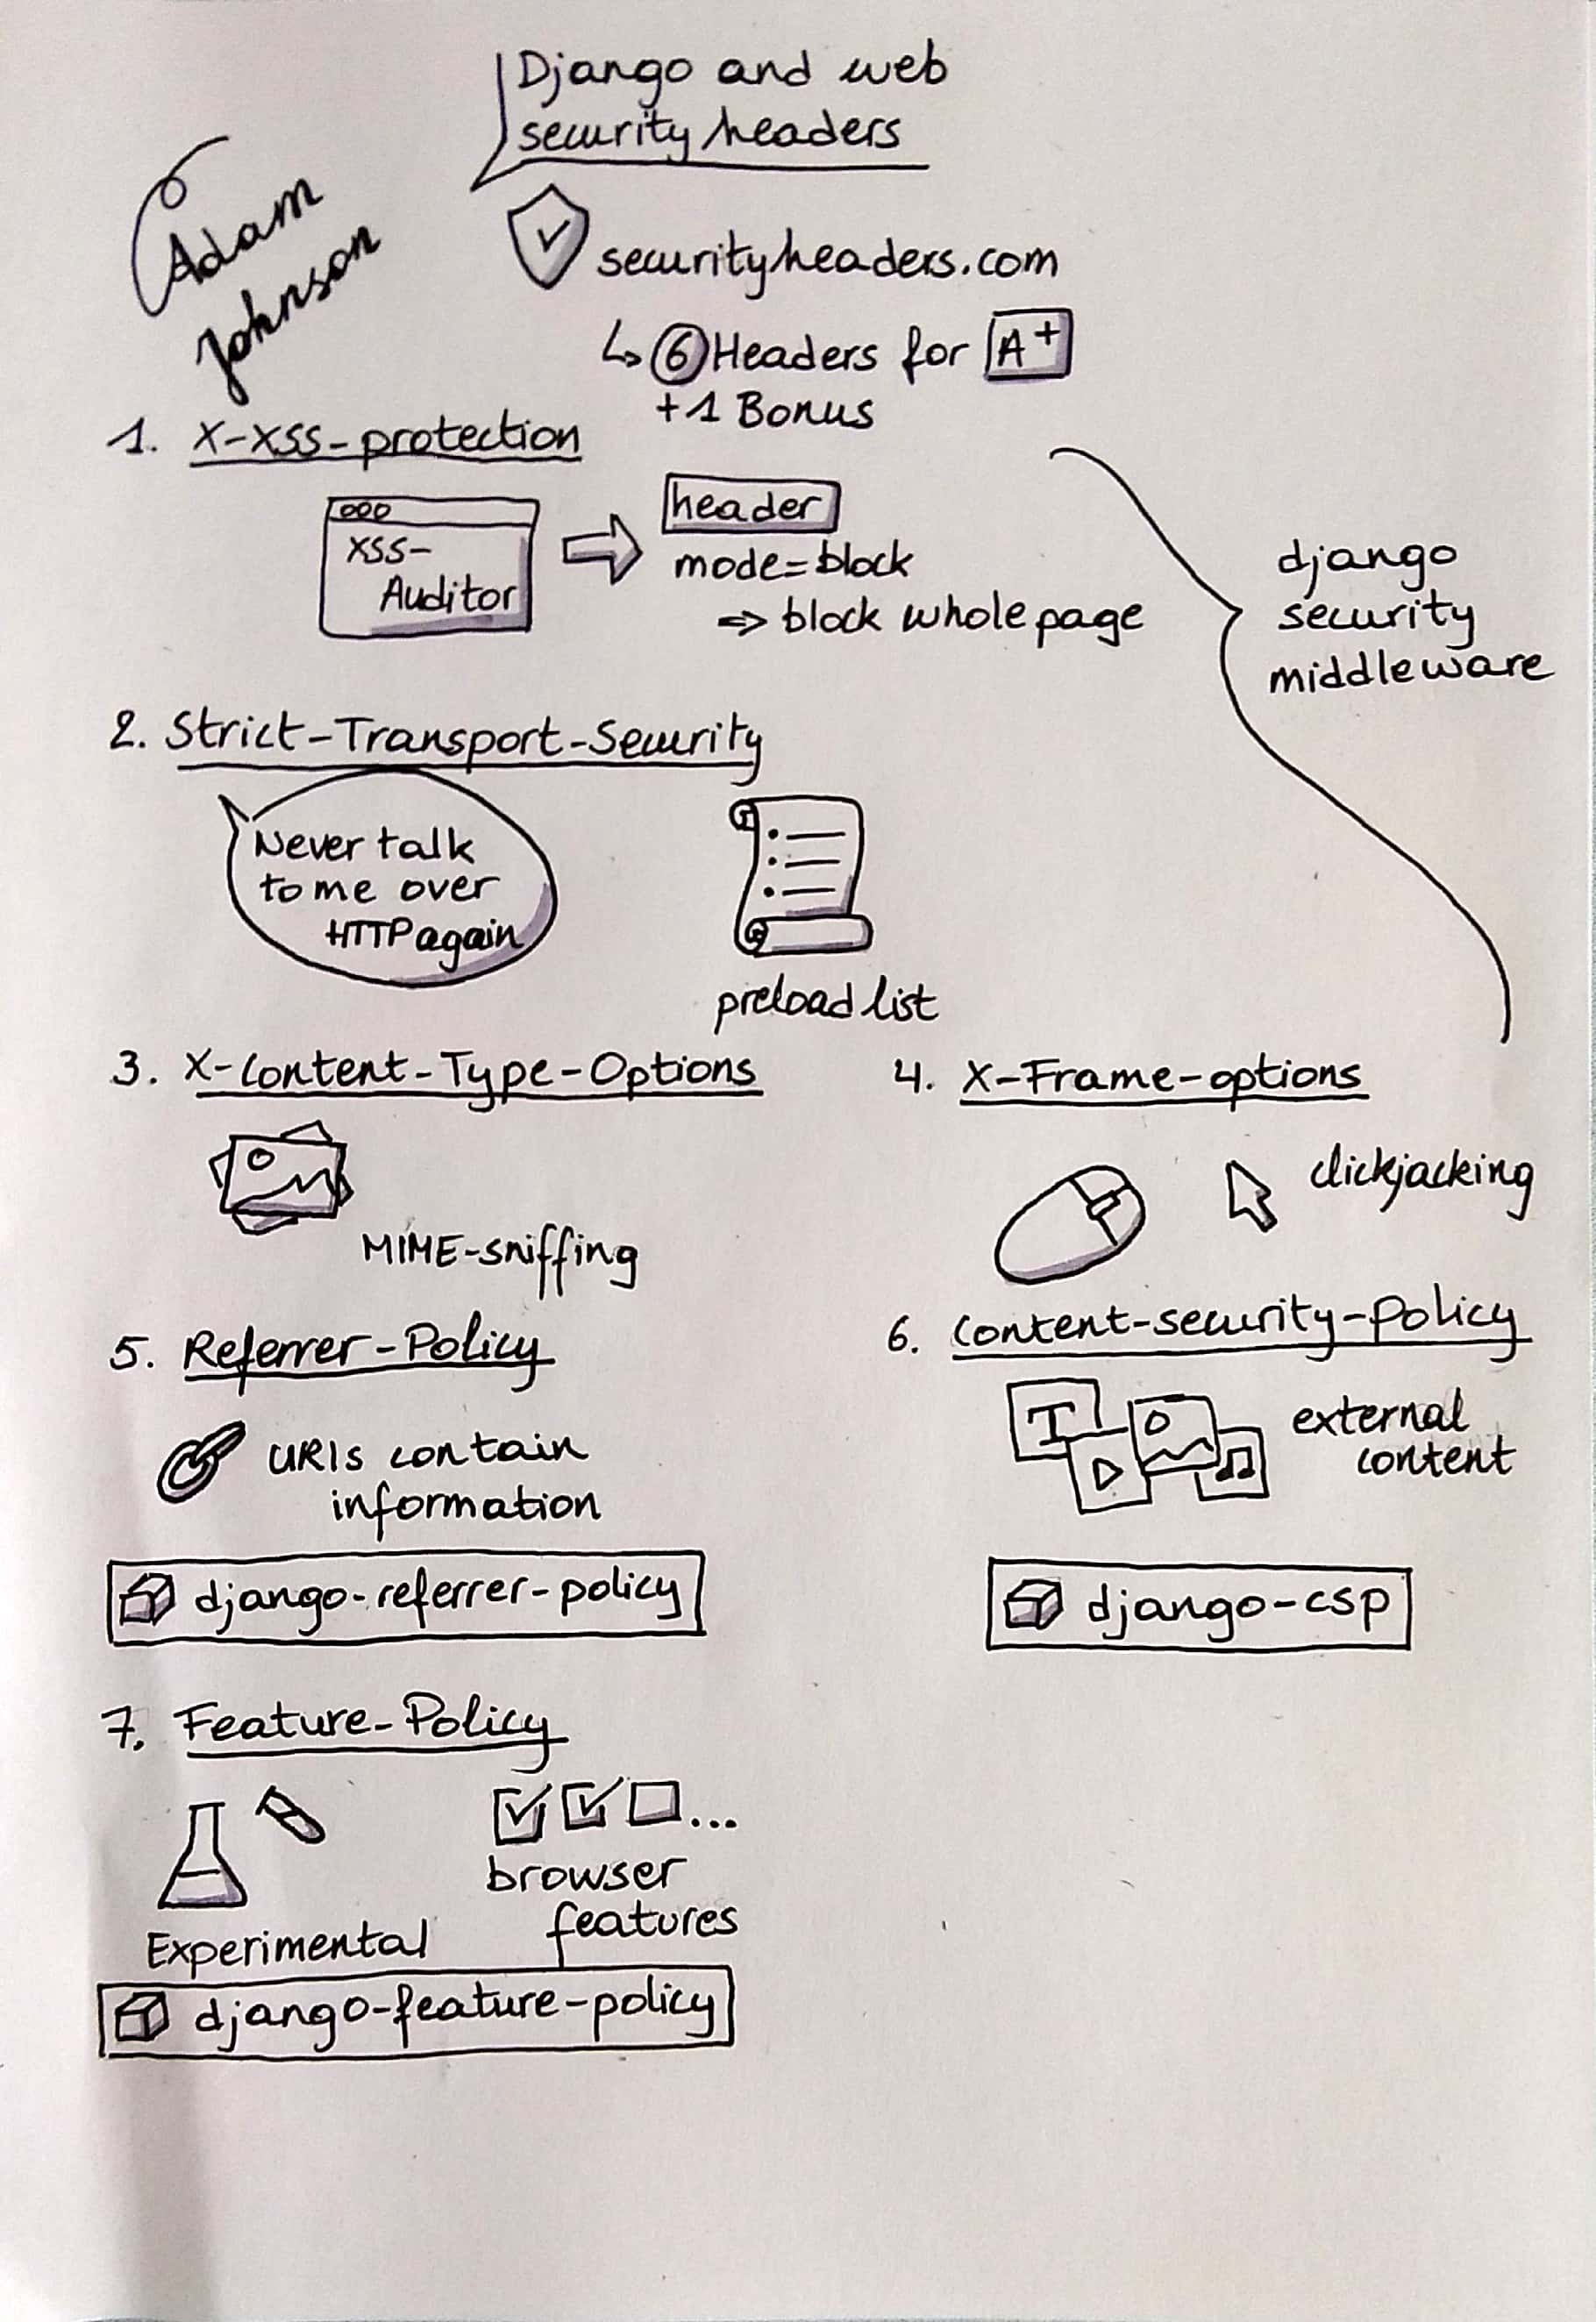 Django and web
security headers
Adam
Johnson
securityheaders.com
↳ 6 Headers for A+
+1 Bonus
1. X-XSS-protection
XSS-
Auditor
header
mode=block
⇒ block whole page
django
security
middleware
2. Strict-Transport-Security
Never talk
to me over
HTTP again
preload list
3. X-Content-Type-Options
MIME-sniffing
4. X-Frame-options
clickjacking
5. Referrer-Policy
URIs contain
information
django-referrer-policy
6. Content-security-Policy
T
external
content
django-csp
7. Feature-Policy
Experimental
...
browser
features
django-feature-policy